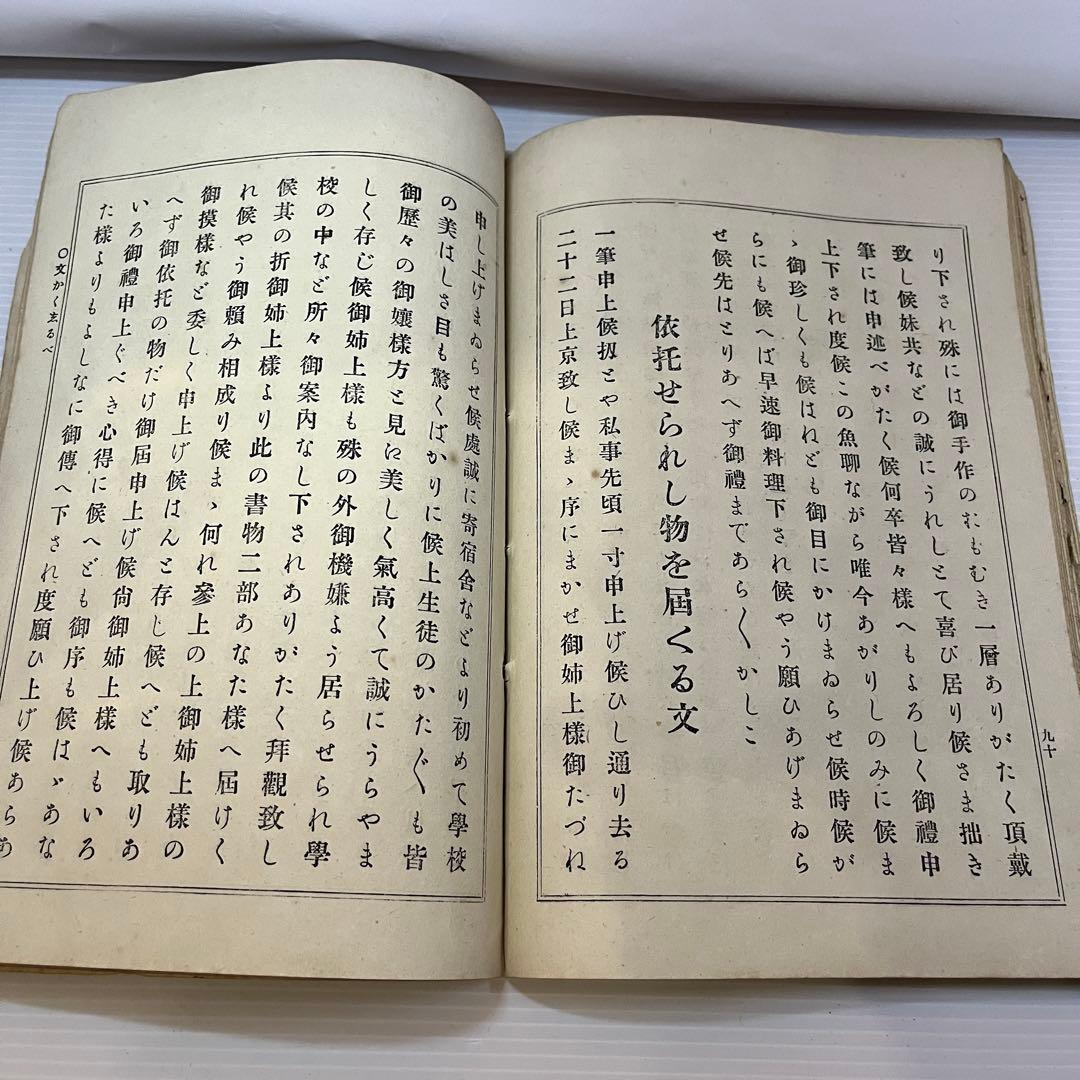 り下され殊には御手作のたもむき一層ありがたく頂戴
致し候妹共などの誠にうれしとて喜び居り候さま拙き
筆には申述べがたく候何卒皆々樣へもよろしく御禮申
上下され度候この魚聊ながら唯今あがりしのみに候ま
ゝ御珍しくも候はねども御目にかけまゐらせ候時候が
らにも候へば早速御料理下され候やう願ひあげまゐら
せ候先はとりあへず御禮まであら〳〵かしこ
依托せられし物を屆くる文
一筆申上候扨とや私事先頃一寸申上げ候ひし通り去る
二十二日上京致し候まゝ序にまかせ御姉上樣御たづね
九十
申し上げまゐらせ候處誠に寄宿舍などより初めて學校
の美はしさ目も驚くばかりに候上生徒のかた〴〵も皆
御歷々の御孃樣方と見に美しく氣高くて誠にうらやま
しく存じ候御姉上樣も殊の外御機嫌よう居らせられ學
校の中など所々御案內なし下されありがたく拜觀致し
候其の折御姉上樣より此の書物二部あなた樣へ屆けく
れ候やう御賴み相成り候まゝ何れ參上の上御姉上樣の
御摸樣など委しく申上げ候はんと存じ候へども取りあ
へず御依托の物だけ御屆申上げ候尙御姉上樣へもいろ
いろ御禮申上ぐべき心得に候へども御序も候はゞあな
た樣よりもよしなに御傳へ下され度願ひ上げ候あらあ
〇文かくまるべ